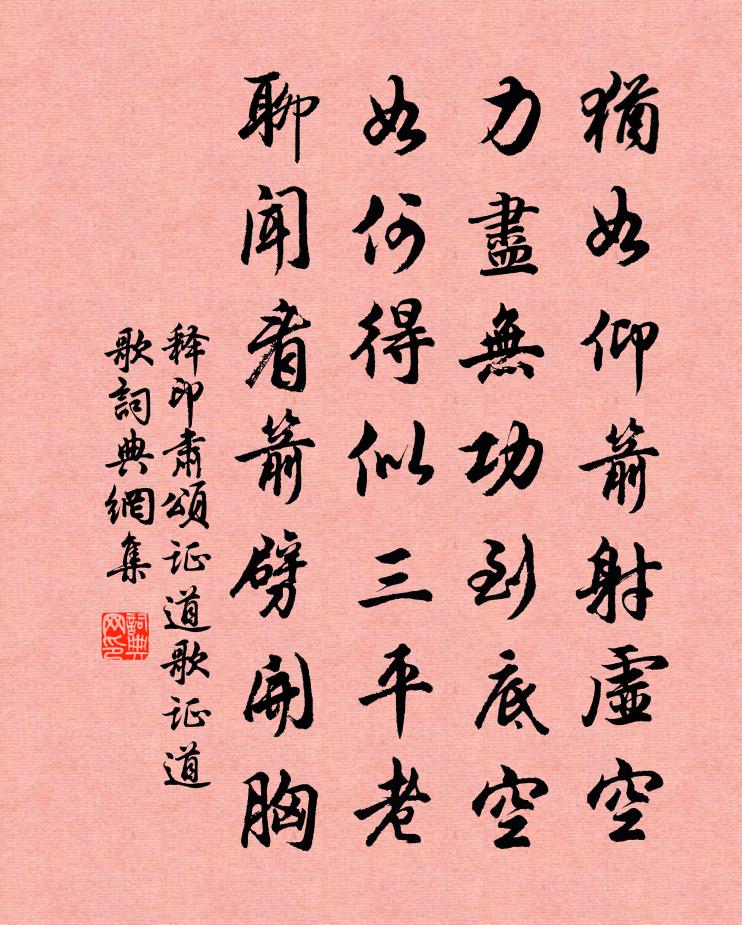 猶如仰箭射虛空
力盡無功到底空
如何得似三平老
聊聞看箭劈開胸
释印肃頌证道歌证道
歌詞典網集
詞典网印